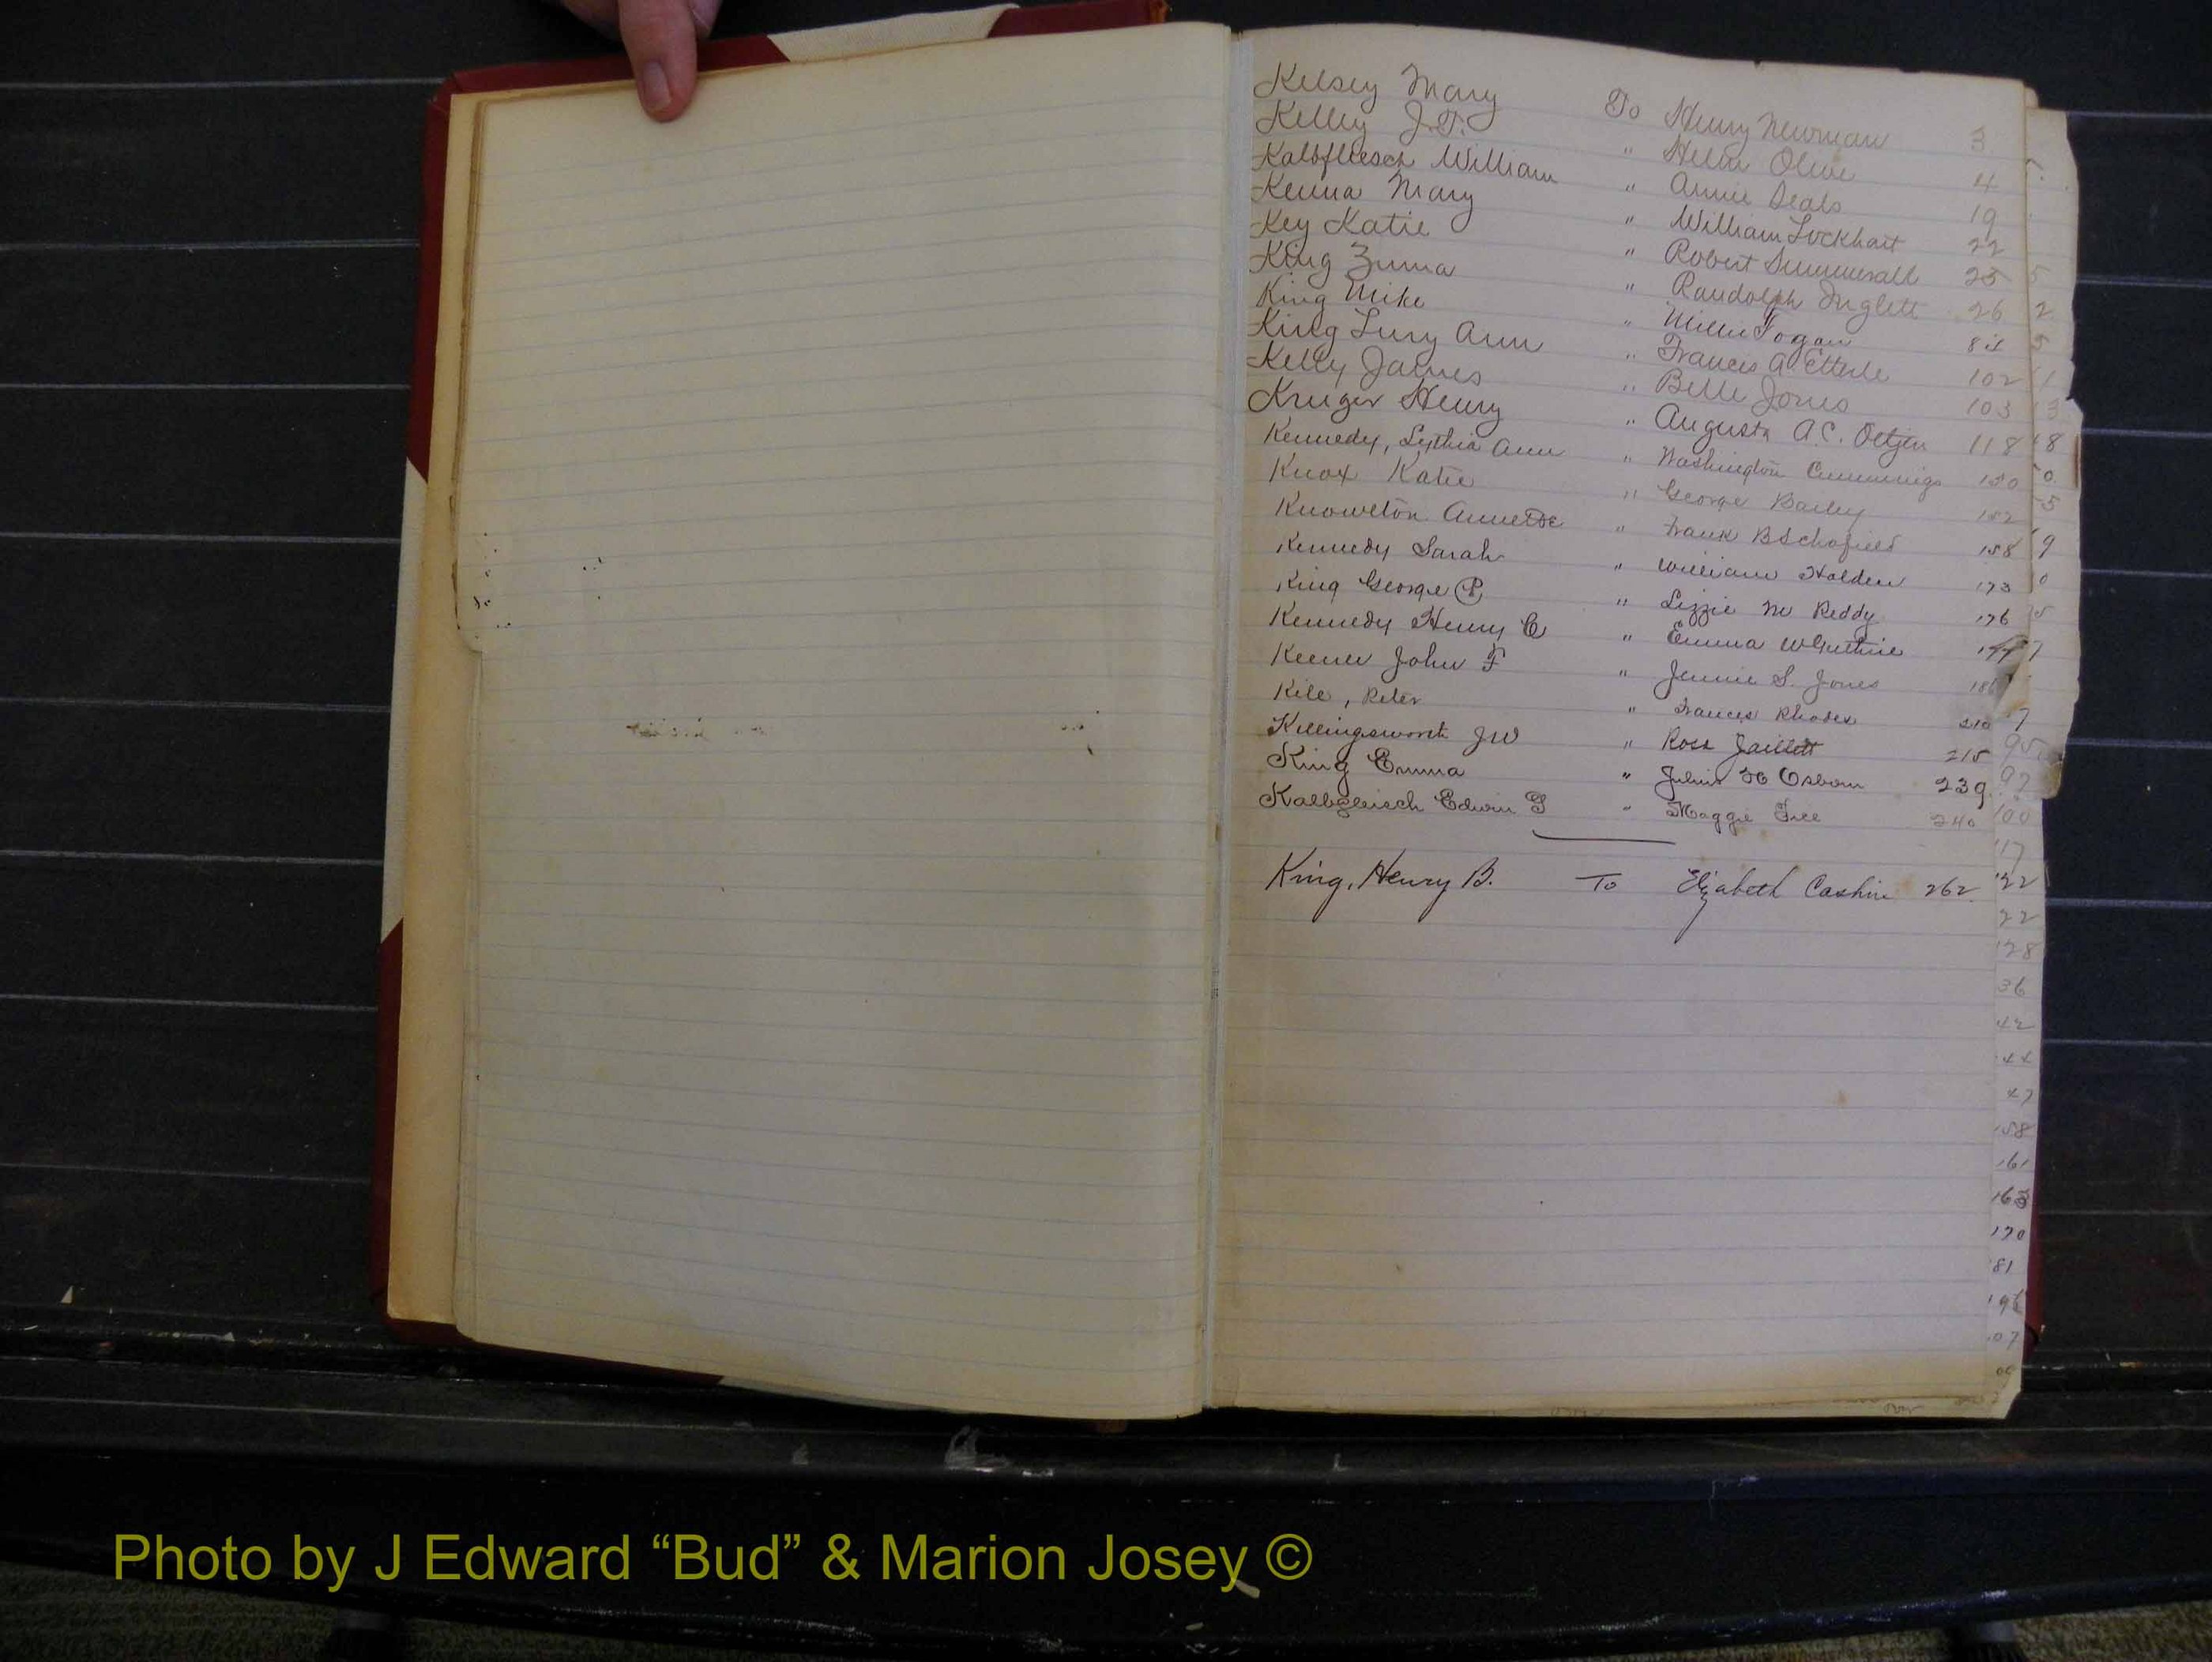 Kelsey Mary To Henry Newman 3
Kelley J.T. " Helen Olive 4
Kalbfleisch William " Annie Seals 19
Kenna Mary " William Lockhart 22
Key Katie " Robert Summerall 25
King Zuma " Randolph Inglett 26
King Mike " Millie Fogan 84
King Lury Ann " Frances A. Etterle 102
Kelly James " Belle Jones 103
Kruger Henry " Augusta A.C. Oetjen 118
Kennedy, Lythia Ann " Washington Cummings 150
Knox Katie " George Bailey 152
Knowlton Annette " Frank B Schofield 158
Kennedy Sarah " William Holden 173
King George P " Lizzie M Reddy 176
Kennedy Henry C " Emma W Guthrie
Keener John F " Jennie S. Jones
Kile, Peter " Frances Rhodes 210
Killingsworth JW " Rosa Jaillett 215
King Emma " Julius H Osborn 239
Kalbfleisch Edwin G " Maggie Free 240
King, Henry B. To Elizabeth Cashin 262
22
28
36
42
44
47
158
161
163
170
81
196
07
09
over
Photo by J Edward “Bud” & Marion Josey ©